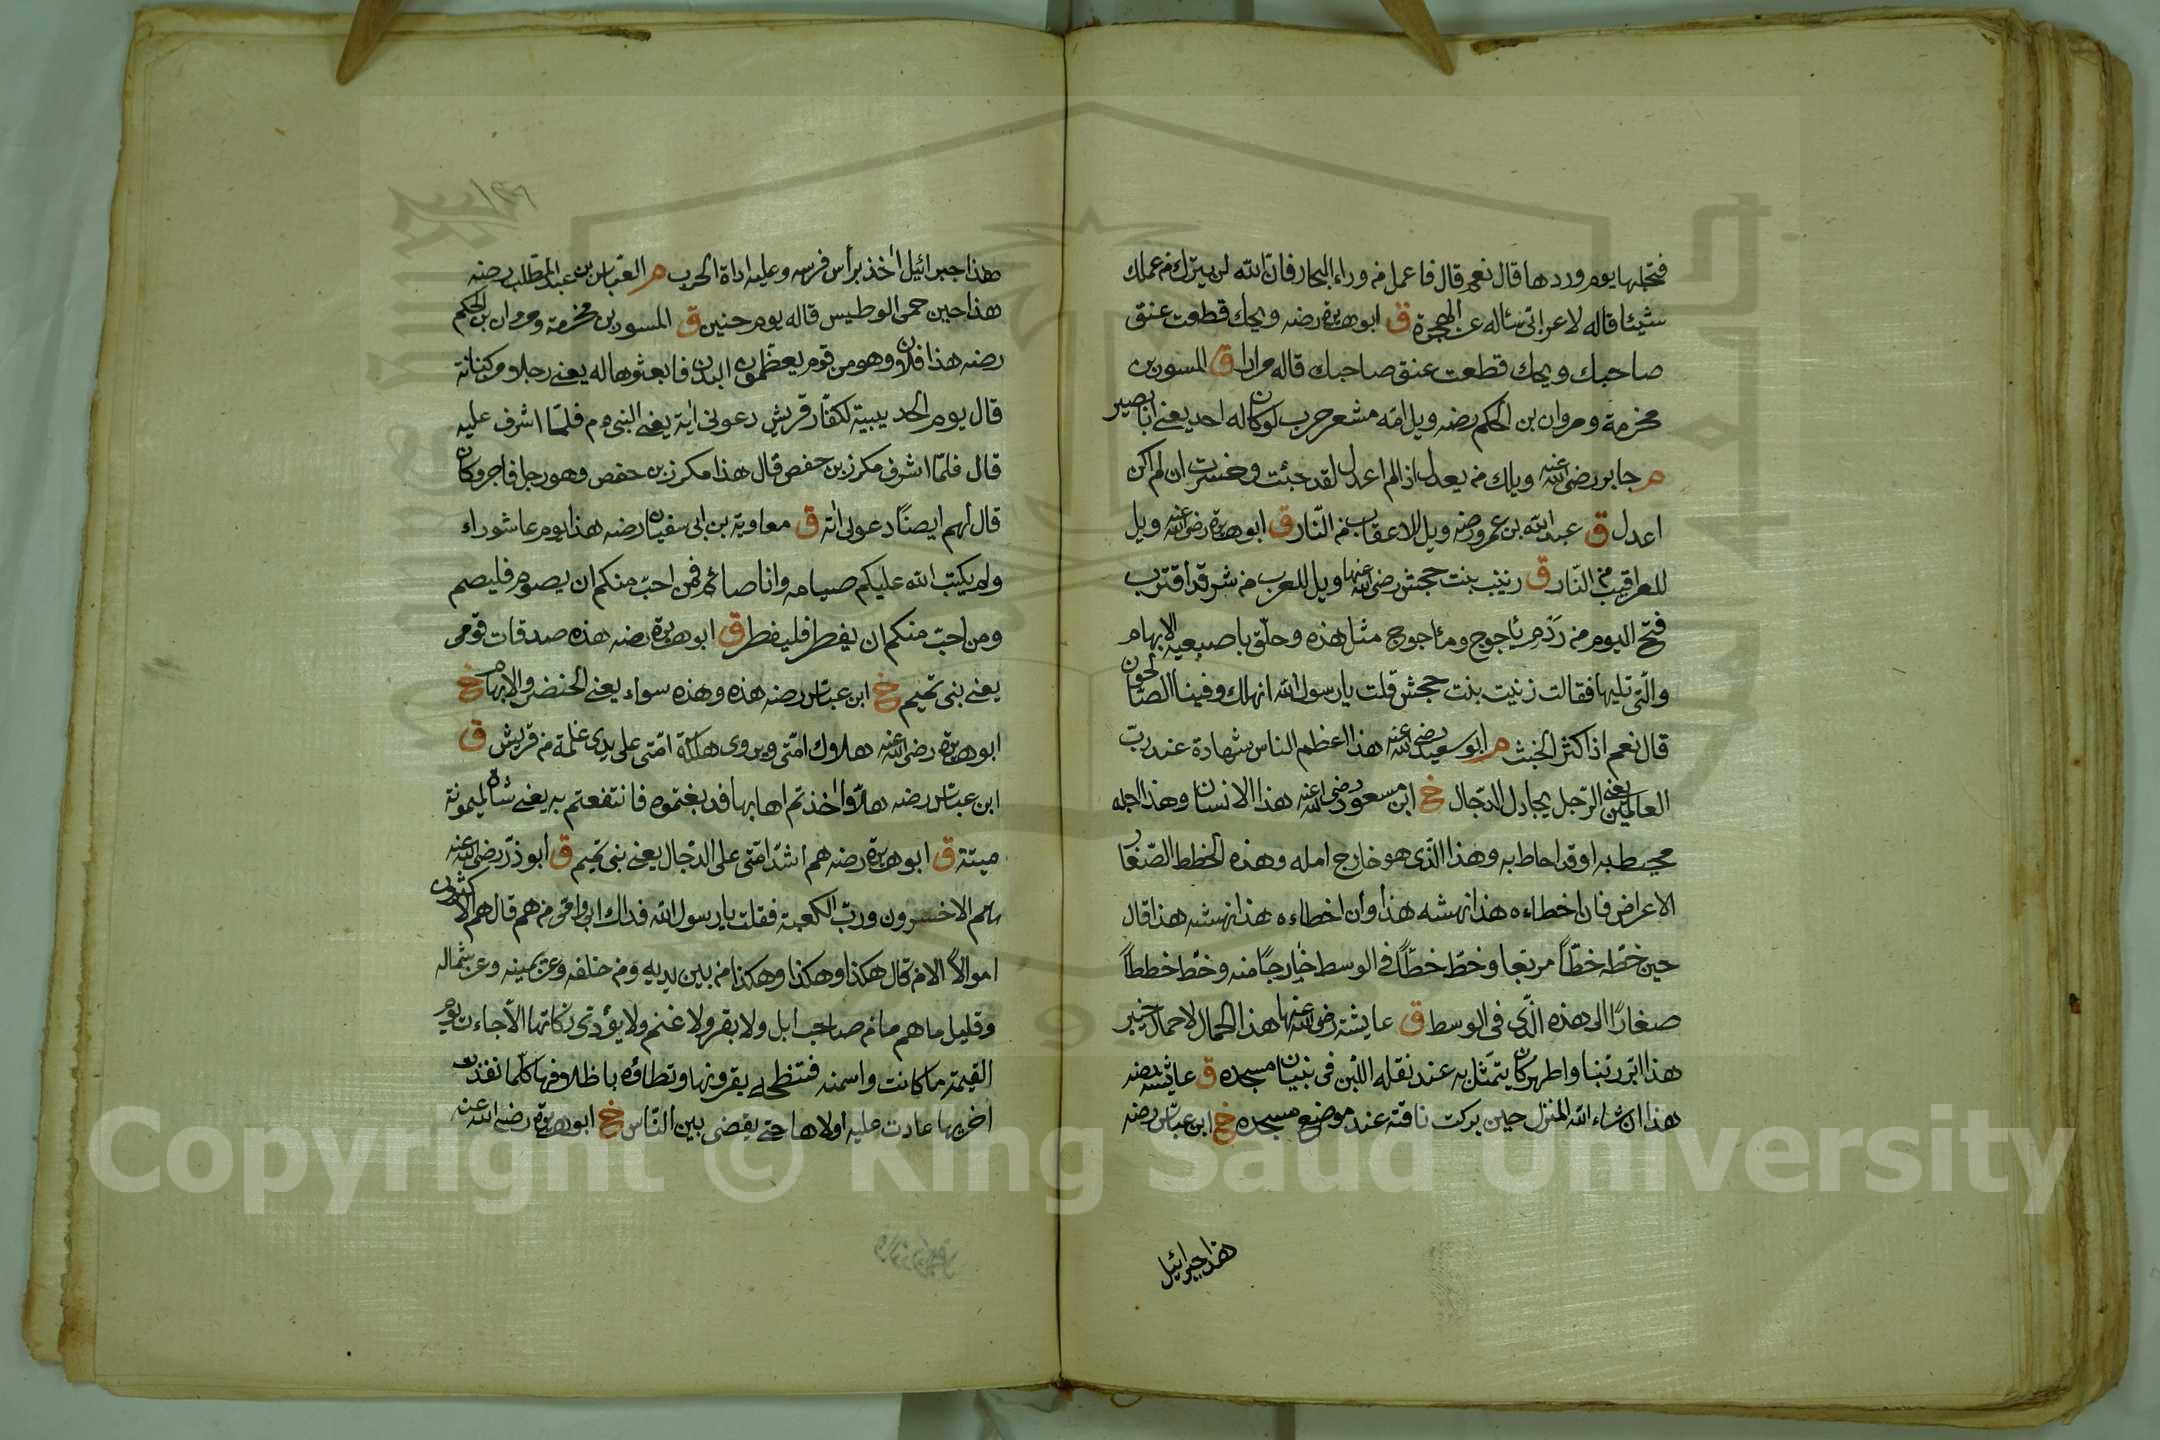 فتحلبها يوم وردها قال نعم قال فاعمل من وراء البحار فان الله لن يترك من عملك
شيئا قاله لاعرابى سئاله عن الهجرة ق ابو هريرة رضه ويحك قطعت عنق
صاحبك ويحك قطعت عنق صاحبك قاله مرارا ق المسور بن
مخرمة ومروان بن الحكم رضه ويل امه مشعر حرب لو كان له احد يعنى ابا بصير
م جابر رضى الله عنه ويلك من يعدل اذا لم اعدل لقد خبئت وخسرت ان لم اكن
اعدل ق عبد الله بن عمرو رضه ويل للاعقاب من النار ق ابو هريرة رضى الله عنه ويل
للعراقيب من النار ق زينب بنت جحش رضى الله عنها ويل للعرب من شر قد اقترب
فتح اليوم من ردم يأجوج ومأجوج مثل هذه وحلق باصبعيه الابهام
والتى تليها فقالت زينب بنت جحش قلت يا رسول الله انهلك وفينا الصالحون
قال نعم اذا كثر الخبث م ابو سعيد رضى الله عنه هذا اعظم الناس شهادة عند رب
العالمين يعنى الرجل يجادل الدجال خ ابن مسعود رضى الله عنه هذا الانسان وهذا اجله
محيط به او قد احاط به وهذا الذى هو خارج امله وهذه الخطط الصغار
الاعراض فان اخطاءه هذا نهشه هذا وان اخطاءه هذا نهشه هذا قال
حين خط خطّا مربعا وخط خطّا فى الوسط خارجا منه وخط خططاً
صغارًا الى هذه الذى فى الوسط ق عايشة رضى الله عنها هذا الحمال لا حمال خيبر
هذا ابر ربنا واطهر كان يتمثل به عند نقله اللبن فى بنيان مسجده ق عايشة رضه
هذا ان شاء الله المنزل حين بركت ناقته عند موضع مسجده خ ابن عباس رضه
هذا جبرائيل
هذا جبرائيل اخذ برأس فرسه وعليه اداة الحرب م العباس بن عبد المطلب رضه
هذا حين حمى الوطيس قاله يوم حنين ق المسور بن مخرمة ومروان بن الحكم
رضه هذا فلان وهو من قوم يعظمون البدن فابعثوها له يعنى رجلا من كنانة
قال يوم الحديبية لكفار قريش دعونى اته يعنى النبى م فلما اشرف عليه
قال فلما اشرف مكرز بن حفص قال هذا مكرز بن حفص وهو رجل فاجر وكان
قال لهم ايضًا دعونى اته ق معاوية بن ابى سفيان رضه هذا يوم عاشوراء
ولم يكتب الله عليكم صيامه وانا صائم فمن احب منكم ان يصوم فليصم
ومن احب منكم ان يفطر فليفطر ق ابو هريرة رضه هذه صدقات قومى
يعنى بنى تميم خ ابن عباس رضه هذه وهذه سواء يعنى الخنصر والابهام خ
ابو هريرة رضى الله عنه هلاك امتى ويروى هلكة امتى على يدى غلمة من قريش ق
ابن عباس رضه هلّا اخذتم اهابها فدبغتموه فانتفعتم به يعنى شاة لميمونة
ميتة ق ابو هريرة رضه هم اشد امتى على الدجال يعنى بنى تميم ق ابو ذر رضى الله عنه
هم الاخسرون ورب الكعبة فقلت يا رسول الله فداك ابى وامى من هم قال هم الاكثرون
اموالاً الا من قال هكذا وهكذا وهكذا من بين يديه ومن خلفه وعن يمينه وعن شماله
وقليل ما هم ما من صاحب ابل ولا بقر ولا غنم ولا يؤدى زكاتها الا جاءت يوم
القيمة ما كانت واسمنه فتنطحه بقرونها وتطاؤه باظلافها كلما نفذت
اخريها عادت عليه اولاها حتى يقضى بين الناس خ ابو هريرة رضى الله عنه
Copyright © King Saud University